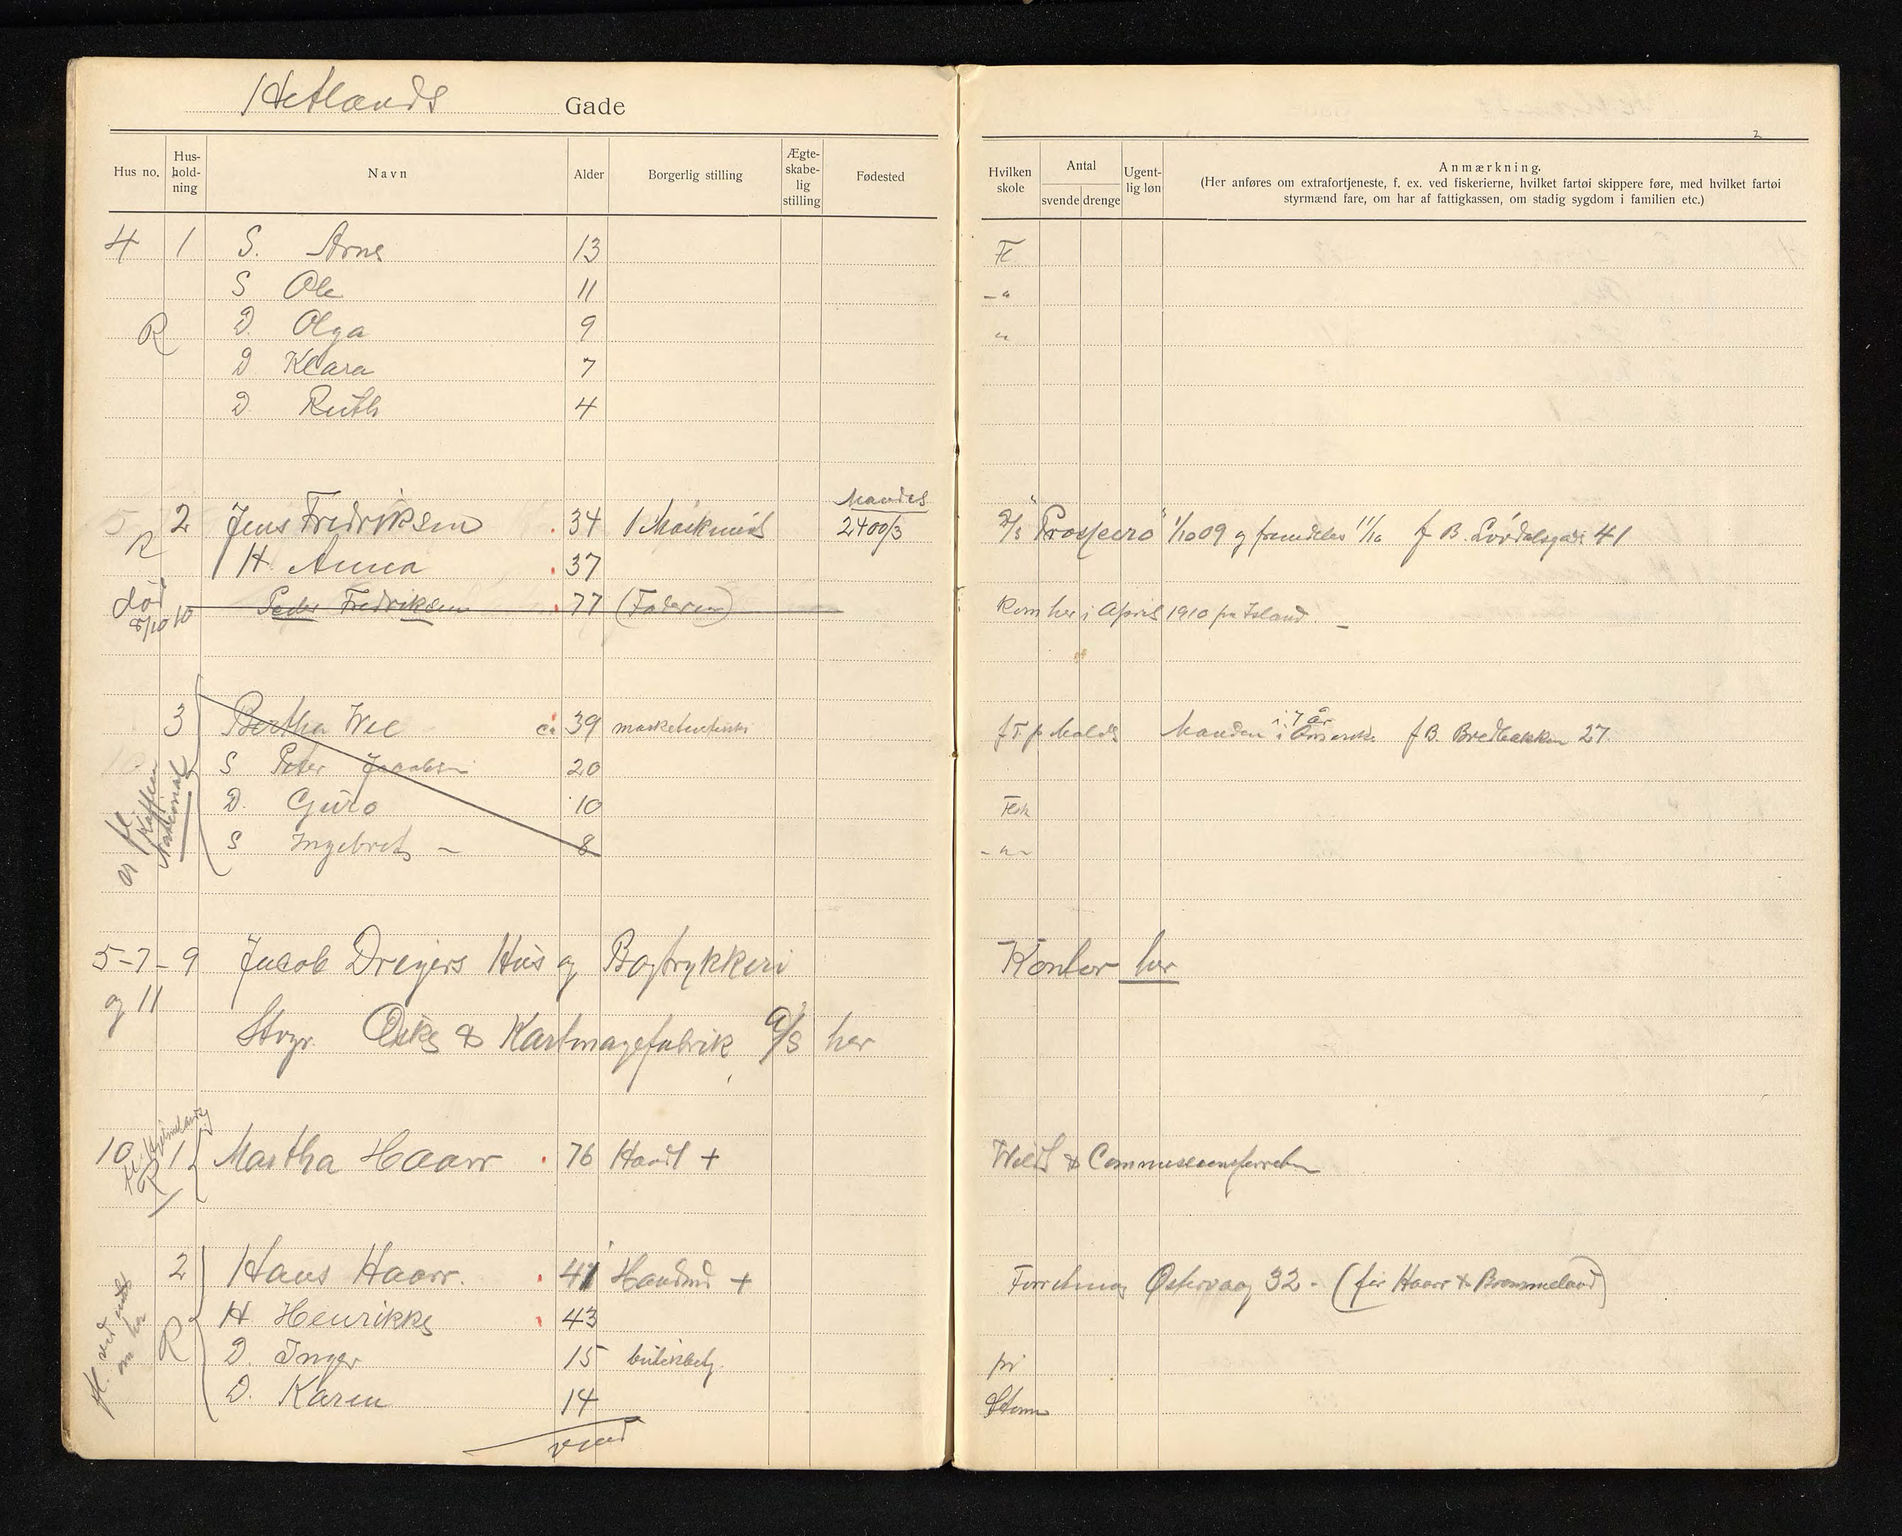 Hetlands Gade
2
Hus no. Hus-hold-ning Navn Alder Borgerlig stilling Ægte-skabe-lig stilling Fødested Hvilken skole Antal svende drenge Ugent-lig løn Anmærkning.
(Her anføres om extrafortjeneste, f. ex. ved fiskerierne, hvilket fartøi skippere føre, med hvilket fartøi
styrmænd fare, om har af fattigkassen, om stadig sygdom i familien etc.)
4 1 S. Arne 13 Fl
S Ole 11 -"
R D. Olga 9 "
D Klara 7
D. Ruth 4
Mandes
5 2 Jens Fredriksen 34 1 Maskmist 2400/3 D/S "Prospero" 1/10 09 g fremdeles 11/10 f B. Lørdalsgade 41
R H. Anna 37
død 8/10 10 Peder Fredriksen 77 (Faderen) Kom her i April 1910 fra Island. -
3 Bertha Wee ca 39 f T p Molde Manden i Amerika i 7 år f B. Bredbakken 27.
S Peter Jacobsen 20
D. Guro 10
S Ingebret - 8 - " -
fl. Kaffeen National
5-7-9 Jacob Dreyers Hus og Bogtrykkeri Kontor her
og 11
Stvgr. Æske & Kartonagefabrik A/S her
10 1 Martha Haarr 76 Handl + & Commissionsforretn
R
2 Hans Haarr. 41 Handlend + Forretning Østervaag 32 - (før Haarr & Brommeland)
H Henrikke 43
R D. Inger 15 butikbetj. pi
D. Karen 14 Storm
fl. ved
vend